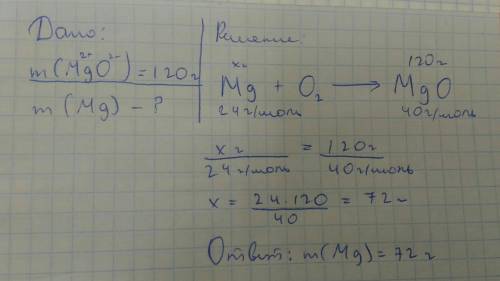 Дано:
m(Mg²⁺O²⁻) = 120г
m (Mg) – ?
Решение:
xг 120г
Mg + O₂ → MgO
24г/моль 40г/моль
xг / 24г/моль = 120г / 40г/моль
x = 24·120 / 40 = 72г
Ответ: m(Mg) = 72г